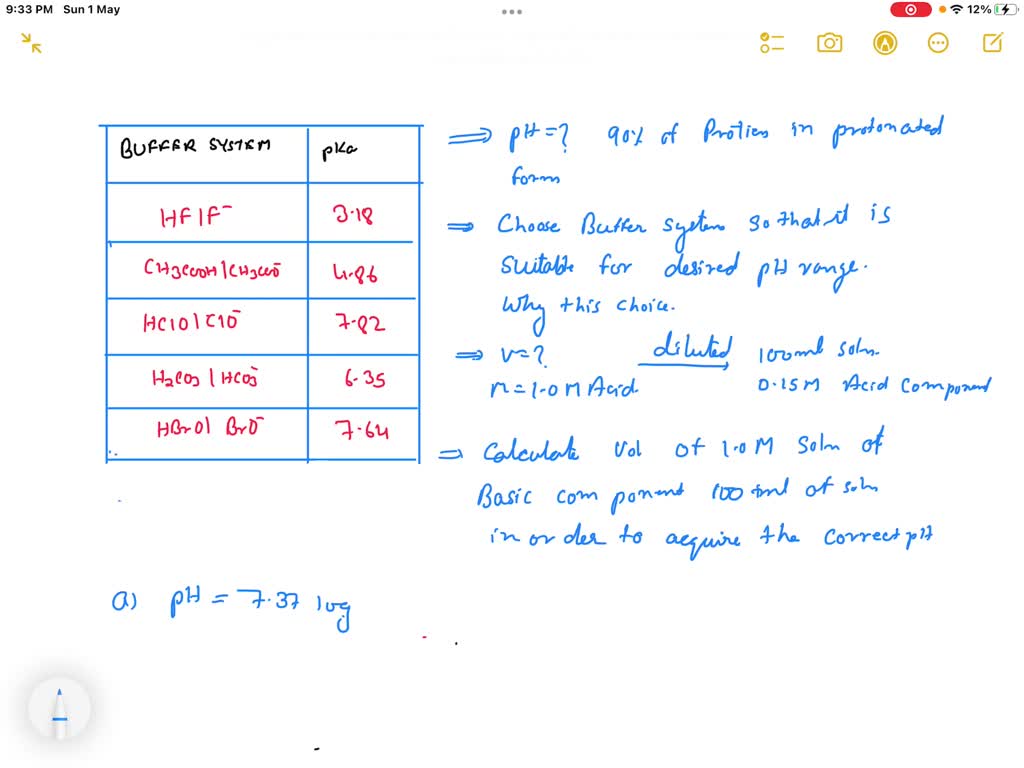 9:33 PM Sun 1 May
12%
BUFFER SYSTEM pKa
HF|F⁻ 3.18
CH3COOH|CH3COO⁻ 4.86
HClO|ClO⁻ 7.82
H2CO3|HCO3⁻ 6.35
HBrO|BrO⁻ 7.64
⟹ pH=? 90% of Proties in protonated
form
⟹ Choose Buffer system so that it is
suitable for desired pH range.
Why this choice.
⟹ V=? diluted 100ml soln.
M=1.0 M Acid 0.15M Acid component
⟹ Calculate vol of 1.0 M soln of
Basic component 100 ml of soln
in order to acquire the correct pH
a) pH = 7.37 log